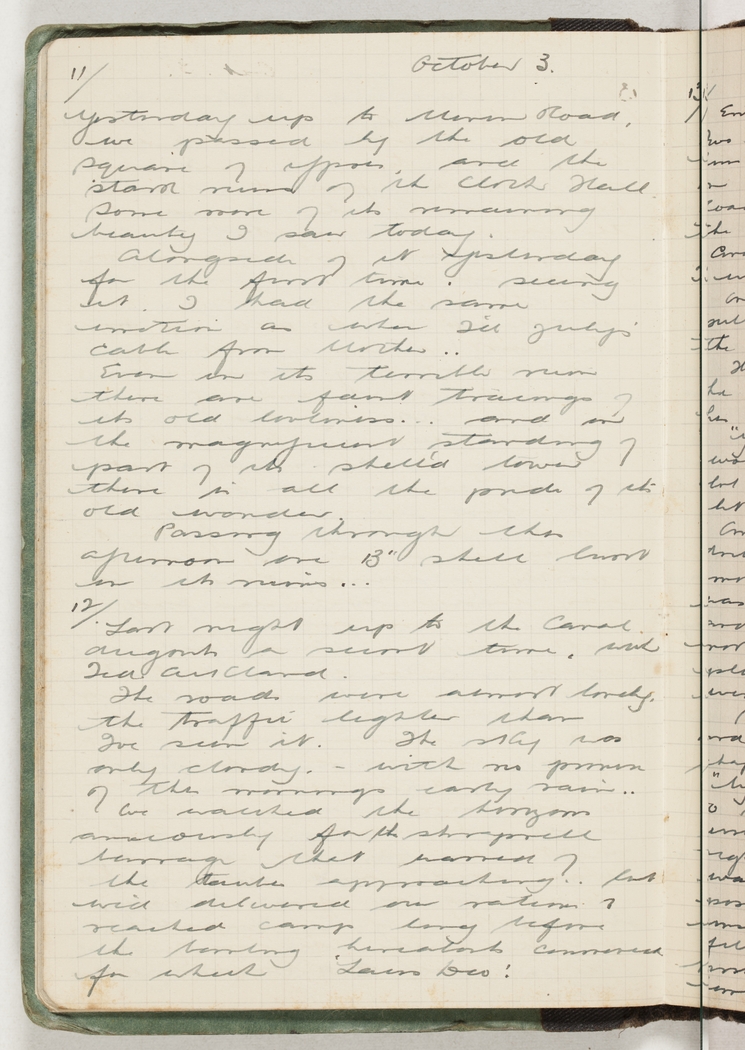 October 3.
11/
Yesterday up to Menin Road,
we passed by the old
square of Ypres, and the
stark ruins of its Cloth Hall.
Some more of its remaining
beauty I saw today.
Alongside of it yesterday
for the first time. seeing
it. I had the same
emotion as when
cable from Mother..
Even in its terrible ruin
there are faint tracings of
its old loveliness... and in
the magnificent standing of
part of its shell'd tower
there is all the pride of its
old wonder.
Passing through this
afternoon one 13" shell burst
in its ruins...
12/
Last night up to the Canal
dugouts a second time, with
Ted
The roads were almost lonely,
the traffic lighter than
I've seen it. The sky was
only cloudy. - with no promise
of this mornings early rain..
We watched the horizon
anxiously for th shrapnell
barrage that warned of
the taubes approaching.. but
we'd delivered our rations &
reached camp long before
the bombing hereabouts commenced
for which 'Laus Deo'!